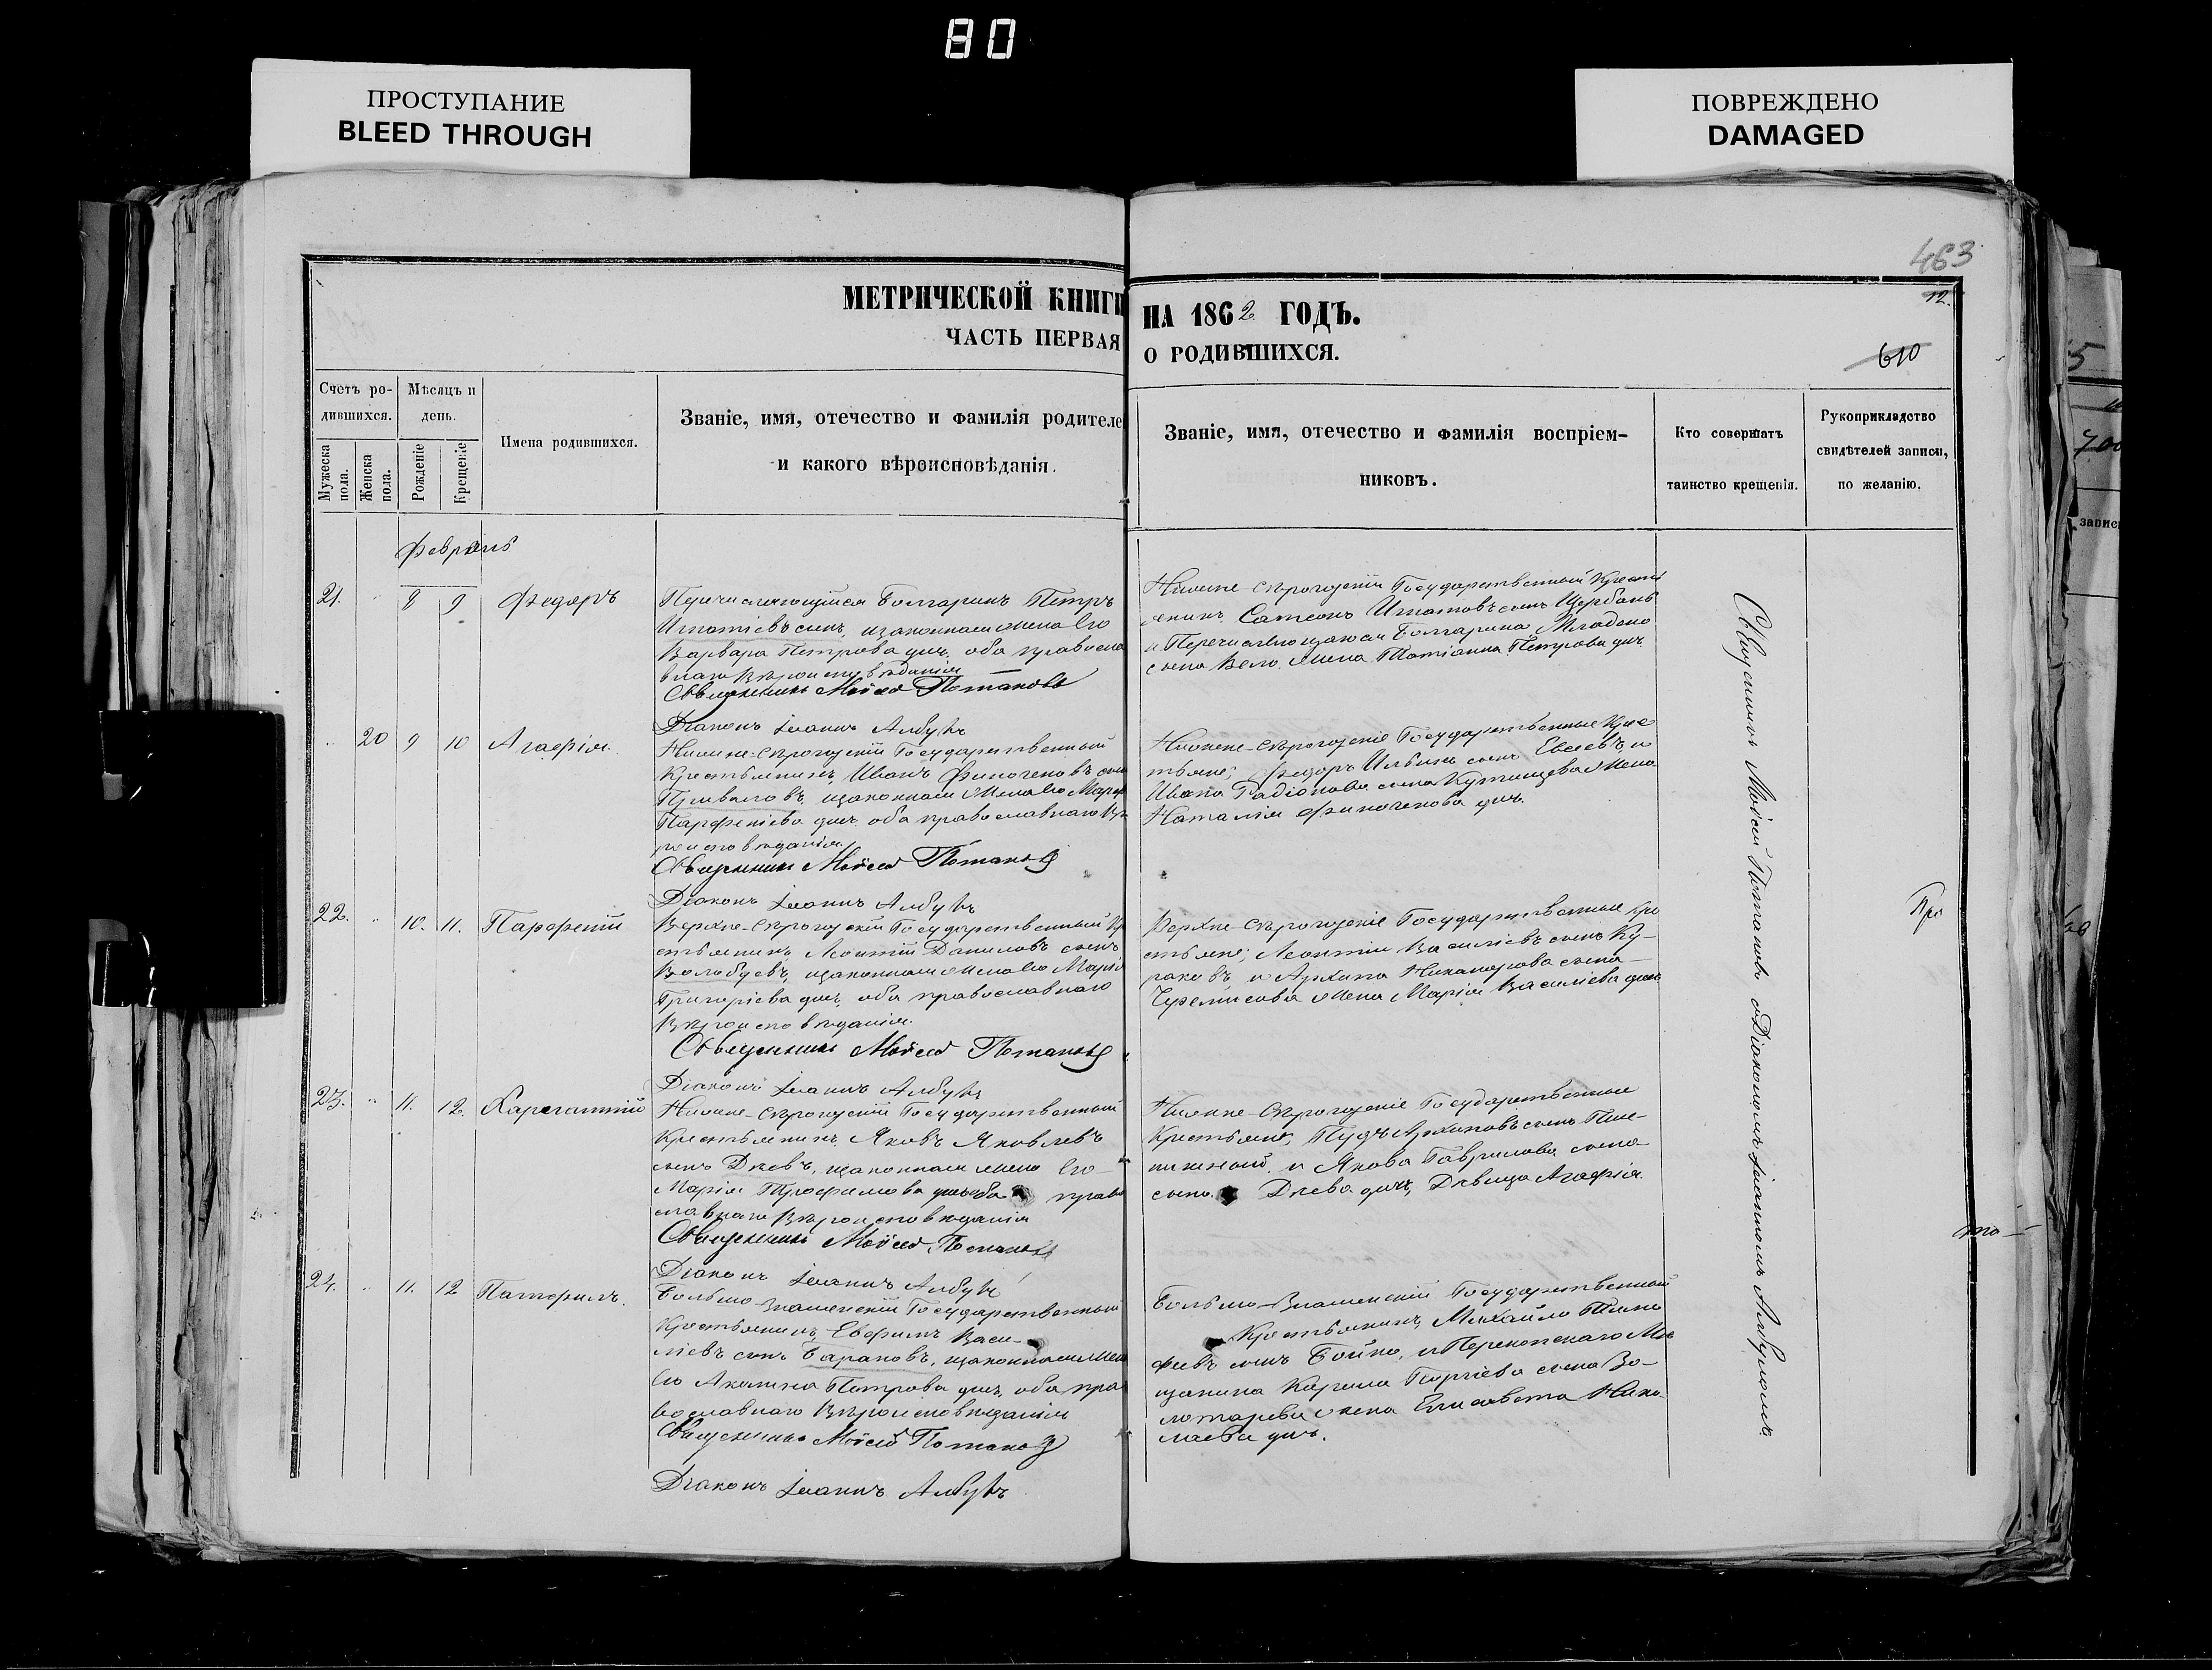 80
ПРОСТУПАНИЕ
BLEED THROUGH
ПОВРЕЖДЕНО
DAMAGED
463
МЕТРИЧЕСКОЙ КНИГИ
НА 1862 ГОДЪ.
12.
ЧАСТЬ ПЕРВАЯ
О РОДИВШИХСЯ.
610
Счетъ ро-
дившихся.
Мужеска
пола.
Женска
пола.
Мѣсяцъ и
день.
Рожденіе
Крещеніе
Имена родившихся.
Званіе, имя, отечество и фамилія родителе
и какого вѣроисповѣданія.
Званіе, имя, отечество и фамилія воспріем-
никовъ.
Кто совершатъ
таинство крещенія.
Рукоприкладство
свидѣтелей записи,
по желанію.
Февраль
21. 8 9 Федоръ
Перечисляющійся Болгаринъ Петръ
Игнатіевъ сынъ, изаконная жена Его
Варвара Петрова дчь, оба правосла
внаго Вѣроисповѣданія
Священникъ Мойсей Потаповъ
Діаконъ Іоаннъ Албулъ
Нижне-Сѣрогозскій Государственный Кресть
янинъ Самсонъ Игнатовъ сынъ Щербань
и Перечисляющаюся Болгарина Младено
сына Вело жена Татіанна Петрова дчь.
20 9 10 Агафія
Нижне-Сѣрогозскій Государственный
Крестьянинъ, Иванъ Финогеновъ сынъ
Приваловъ, изаконная жена Его Марфа
Парфеніева дчь, оба православнаго Вѣ
роисповѣданія,
Священникъ Мойсей Потаповъ
Діаконъ Іоаннъ Албулъ
Нижне-Сѣрогозскіе Государственные Крес
тьяне; Федоръ Ильинъ сынъ Евсеевъ, и
Ивана Радіонова сына жена
Наталія Финогенова дчь.
22. 10. 11. Парфеній
Верхне-Сѣрогозскій Государственный Кр
естьянинъ Леонтій Даниловъ сынъ
Волобуевъ, изаконная жена Его Марія
Григоріева дчь, оба православнаго
Вѣроисповѣданія.
Священникъ Мойсей Потаповъ
Діаконъ Іоаннъ Албулъ
Верхне-Сѣрогозскіе Государственные Кре
стьяне; Леонтій Василіевъ сынъ Ку-
раковъ, и Архипа Никанорова сына
Черемисова жена Марія Василіева дчь
23. 11. 12. Харлампій
Нижне-Сѣрогозскій Государственный
Крестьянинъ, Яковъ Яковлевъ
сынъ Діевъ, изаконная жена Его
Марія Трофимова дчь оба право
славнаго Вѣроисповѣданія
Священникъ Мойсей Потаповъ
Діаконъ Іоаннъ Албулъ
Нижне-Сѣрогозскіе Государственные
Крестьяне, Пудъ Архиповъ сынъ
и Якова Гаврилова сына
сына Діева дчь, Дѣвица Агафія.
24. 11. 12 Памфилъ.
Больше-Знаменскій Государственный
Крестьянинъ, Евфимъ Васи-
ліевъ сынъ Барановъ, изаконная жен
Его Акилина Петрова дчь, оба пра
вославнаго Вѣроисповѣданія
Священникъ Мойсей Потаповъ
Діаконъ Іоаннъ Албулъ
Больше-Знаменскій Государственный
Крестьянинъ, Михайло Тимо
феевъ сынъ Бойко, и Перекопскаго Мѣ
щанина Кирила Георгіева сына Зо-
лотарева жена Елисавета Нико
лаева дчь.
Священникъ Мойсей Потаповъ съ Діакономъ Іоанномъ Албуломъ.